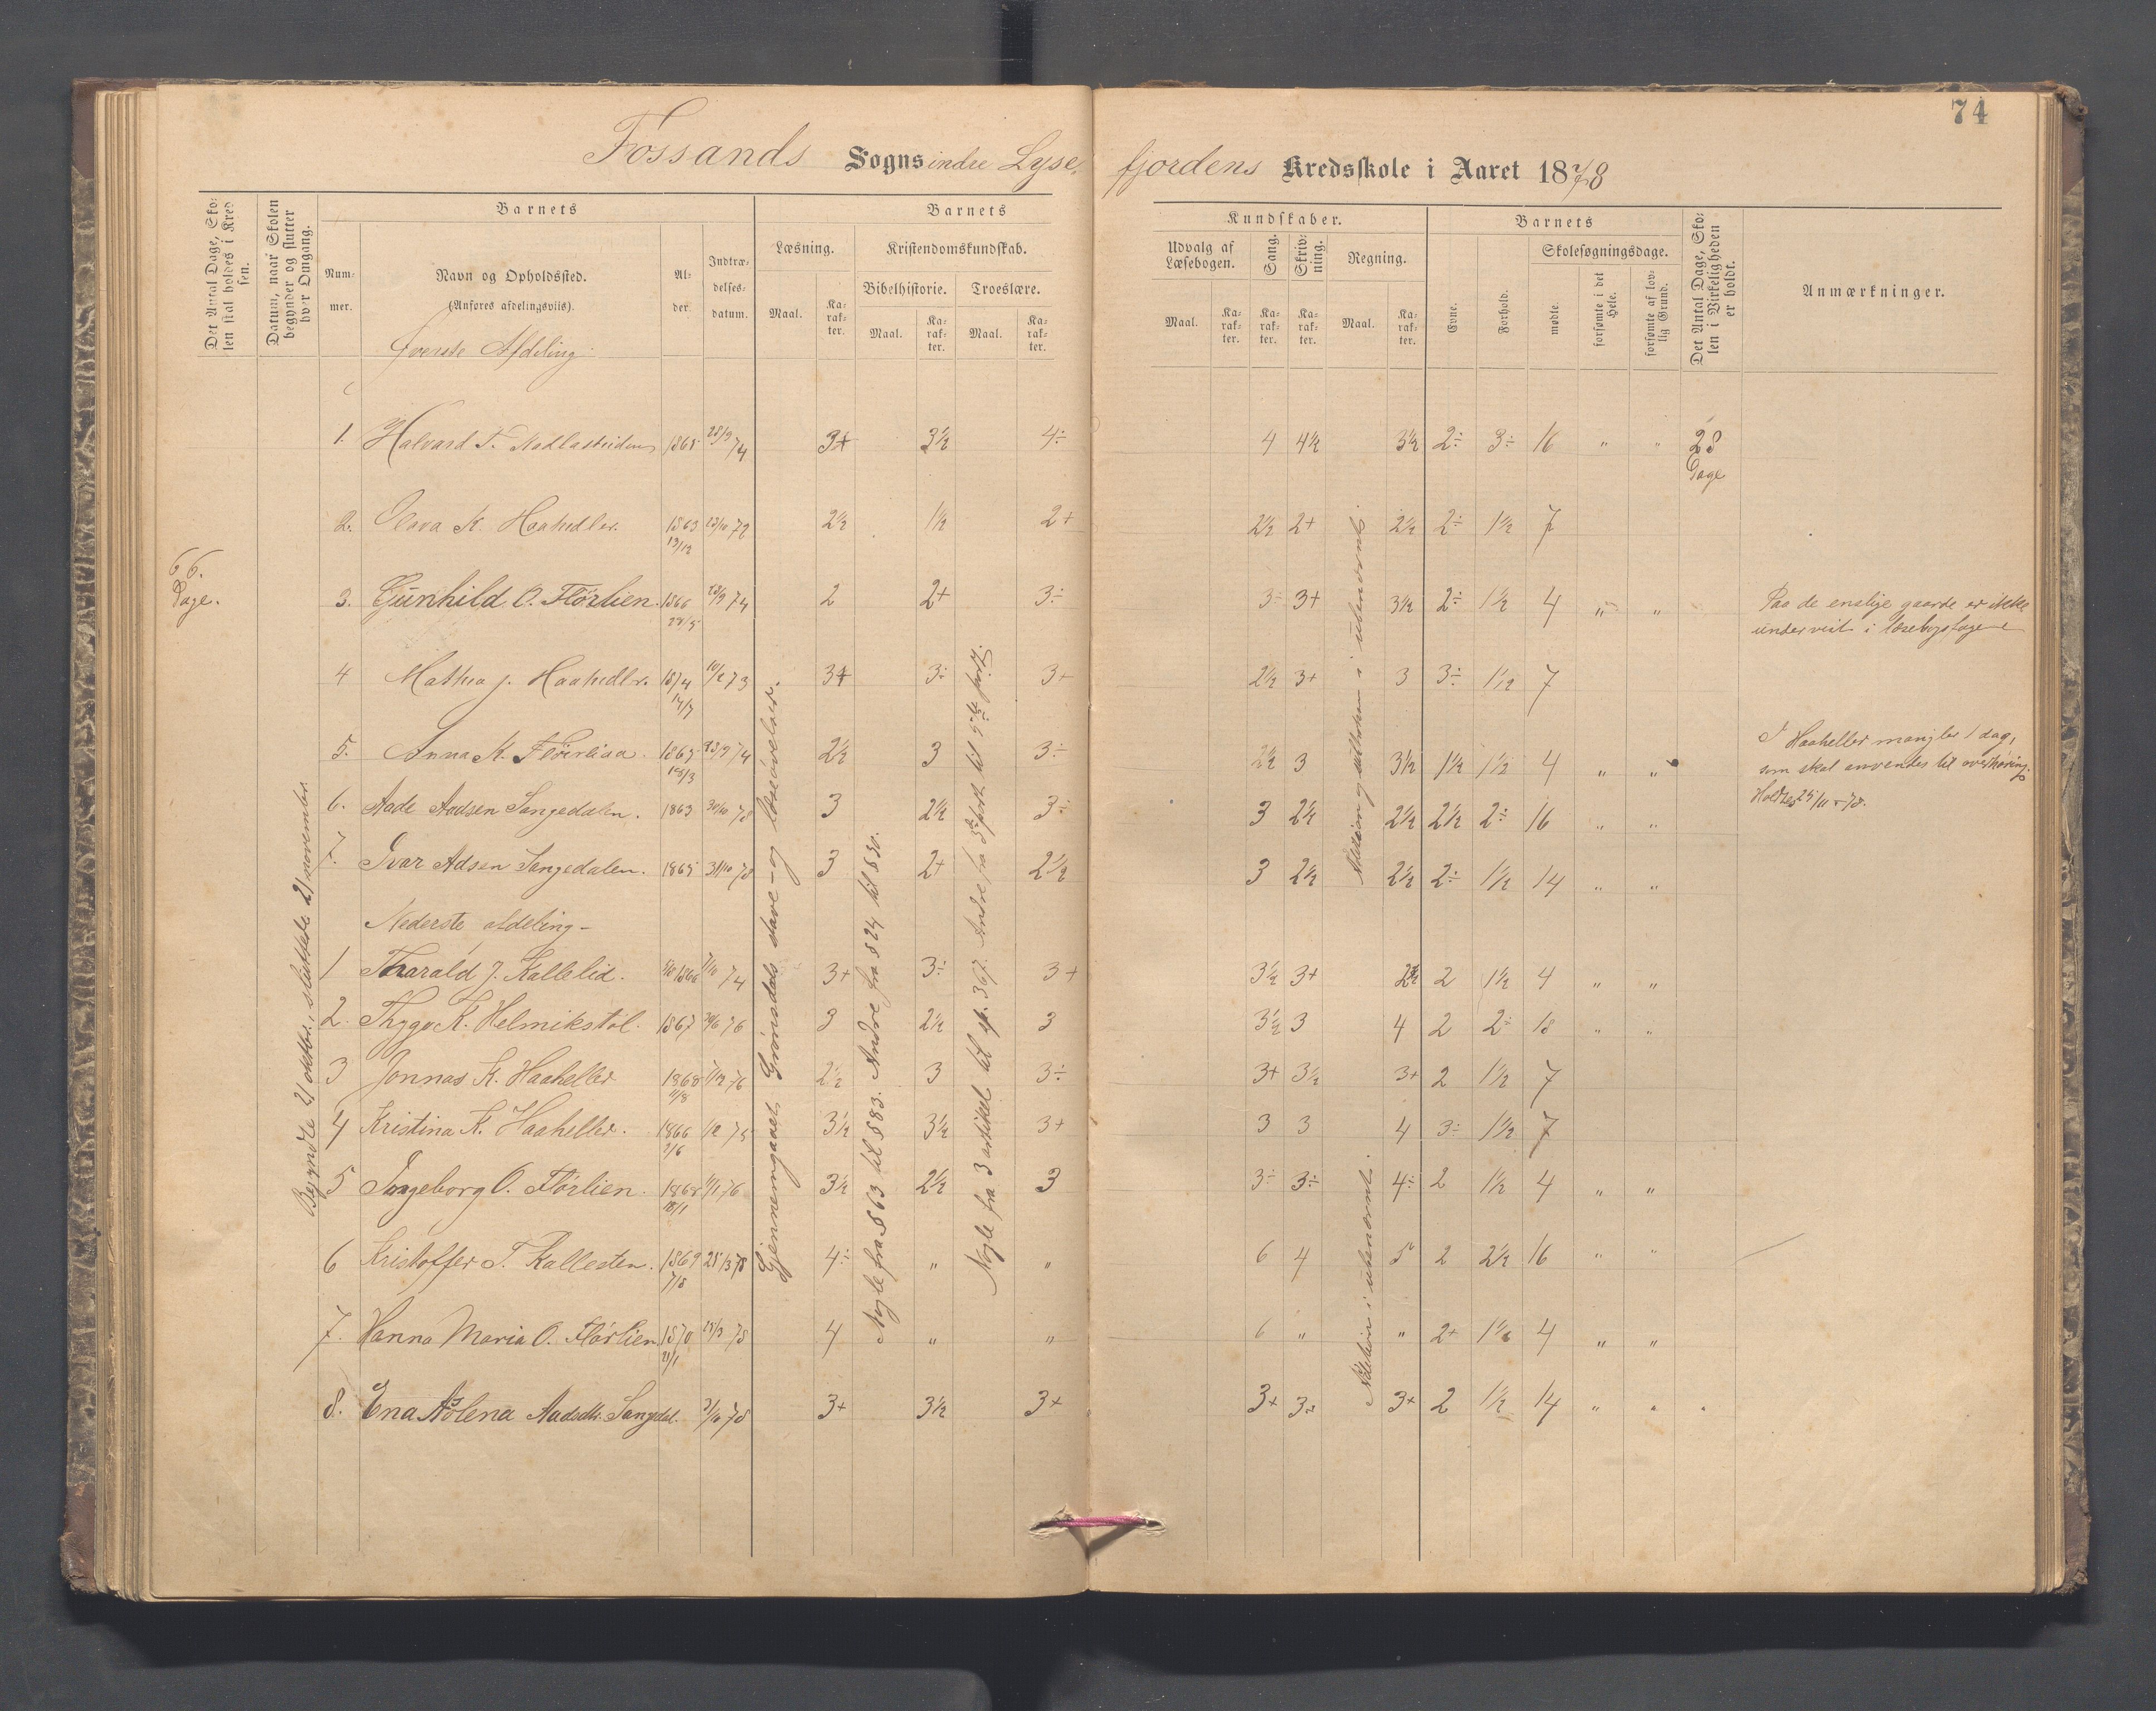 74
Fossands Sogns indre Lyse fjordens Kredsskole i Aaret 1878
Det Antal Dage, Skolen skal holdes i Kredsen.
Datum, naar Skolen begynder og slutter hver Omgang.
Barnets
Nummer.
Navn og Opholdssted.
(Anføres afdelingsviis).
Alder.
Indtrædelsesdatum.
Barnets
Læsning.
Maal.
Karakter.
Kristendomskundskab.
Bibelhistorie.
Maal.
Karakter.
Troeslære.
Maal.
Karakter.
Kundskaber.
Udvalg af Læsebogen.
Maal.
Karakter.
Sang.
Karakter.
Skrivning.
Karakter.
Regning.
Maal.
Karakter.
Barnets
Evne.
Forhold.
Skolesøgningsdage.
mødte.
forsømte i det Hele.
forsømte af lovlig Grund.
Det Antal Dage, Skolen i Virkeligheden er holdt.
Anmærkninger.
Øverste Afdeling.
66. Dage.
Begyndte 21 oktbr., sluttede 21 november
Gjennemgaaet Grønsdals stave- og læseøvelser.
Nogle fra § 63 til § 83. Andre fra § 24 til § 30.
Nogle fra 3 artikel til sp. 367. Andre fra 3die part til 5te part.
1. Halvard T. 1865 28/9 74 3+ 3½ 4÷ 4 4½ 3½ 2÷ 3÷ 16 " " 28 Dage
2. Olava K. Haahedler. 1863 13/12 23/10 72 2½ 1½ 2+ 2½ 2+ 2½ 2÷ 1½ 7
3. Gunhild O. Flörlien. 1866 28/5 28/9 74 2 2+ 3÷ 3÷ 3+ 3½ 2÷ 1½ 4 " " Paa de enslige gaarde er ikke
undervist i læsebogstagene
4 Mathea J. Haahedlr. 1874 14/7 10/2 73 3+ 3÷ 3+ 2½ 3+ 3 3÷ 1½ 7
5. Anna K. Flörliaa. 1865 28/9 74 2½ 3 3÷ 2½ 3 3½ 1½ 1½ 4 " " I Haaheller mangler 1 dag,
som skal anvendes til overhøring.
Holdtes 25/11 - 78.
6. Aade Aadsen Sangedalen. 1863 30/10 78 3 2½ 3÷ 3 2½ 2½ 2½ 2÷ 16 " "
7. Ivar Adsen Sangedalen. 1865 31/10 78 3 2+ 2½ 3 2½ 2½ 2÷ 1½ 14 " "
Nederste afdeling -
1 Tharald J. Kallelid. 1866 7/10 74 3+ 3÷ 3+ 3½ 3+ 2½ 2 1½ 4 " "
2. K. Helmikstöl. 1867 76 3 2½ 3 3½ 3 4 2 2÷ 18 " "
3 Jonnas K. Haaheller 1868 11/8 1/12 76 2½ 3 3÷ 3+ 3½ 3+ 2 1½ 7
4 Kristina K. Haaheller. 1866 2/6 1/2 75 3½ 3½ 3+ 3 3 4 3÷ 1½ 7
5 Ingeborg O. Flörlien. 1868 18/1 1/1 76 3½ 2½ 3 3÷ 3÷ 4÷ 2 1½ 4 " "
6 Kristoffer T. Kallesten. 1869 7/8 28/3 78 4÷ " " 6 4 5 2 2½ 16 " "
7. Hanna Maria O. Flörlien 1870 21/1 28/3 78 4 " " 6 " " 2+ 1½ 4 " "
8. Ena Aölena Aadsdtr. Sangdal 31/10 78 3+ 3½ 3+ 3+ 3÷ 3+ 2 1½ 14 " " "